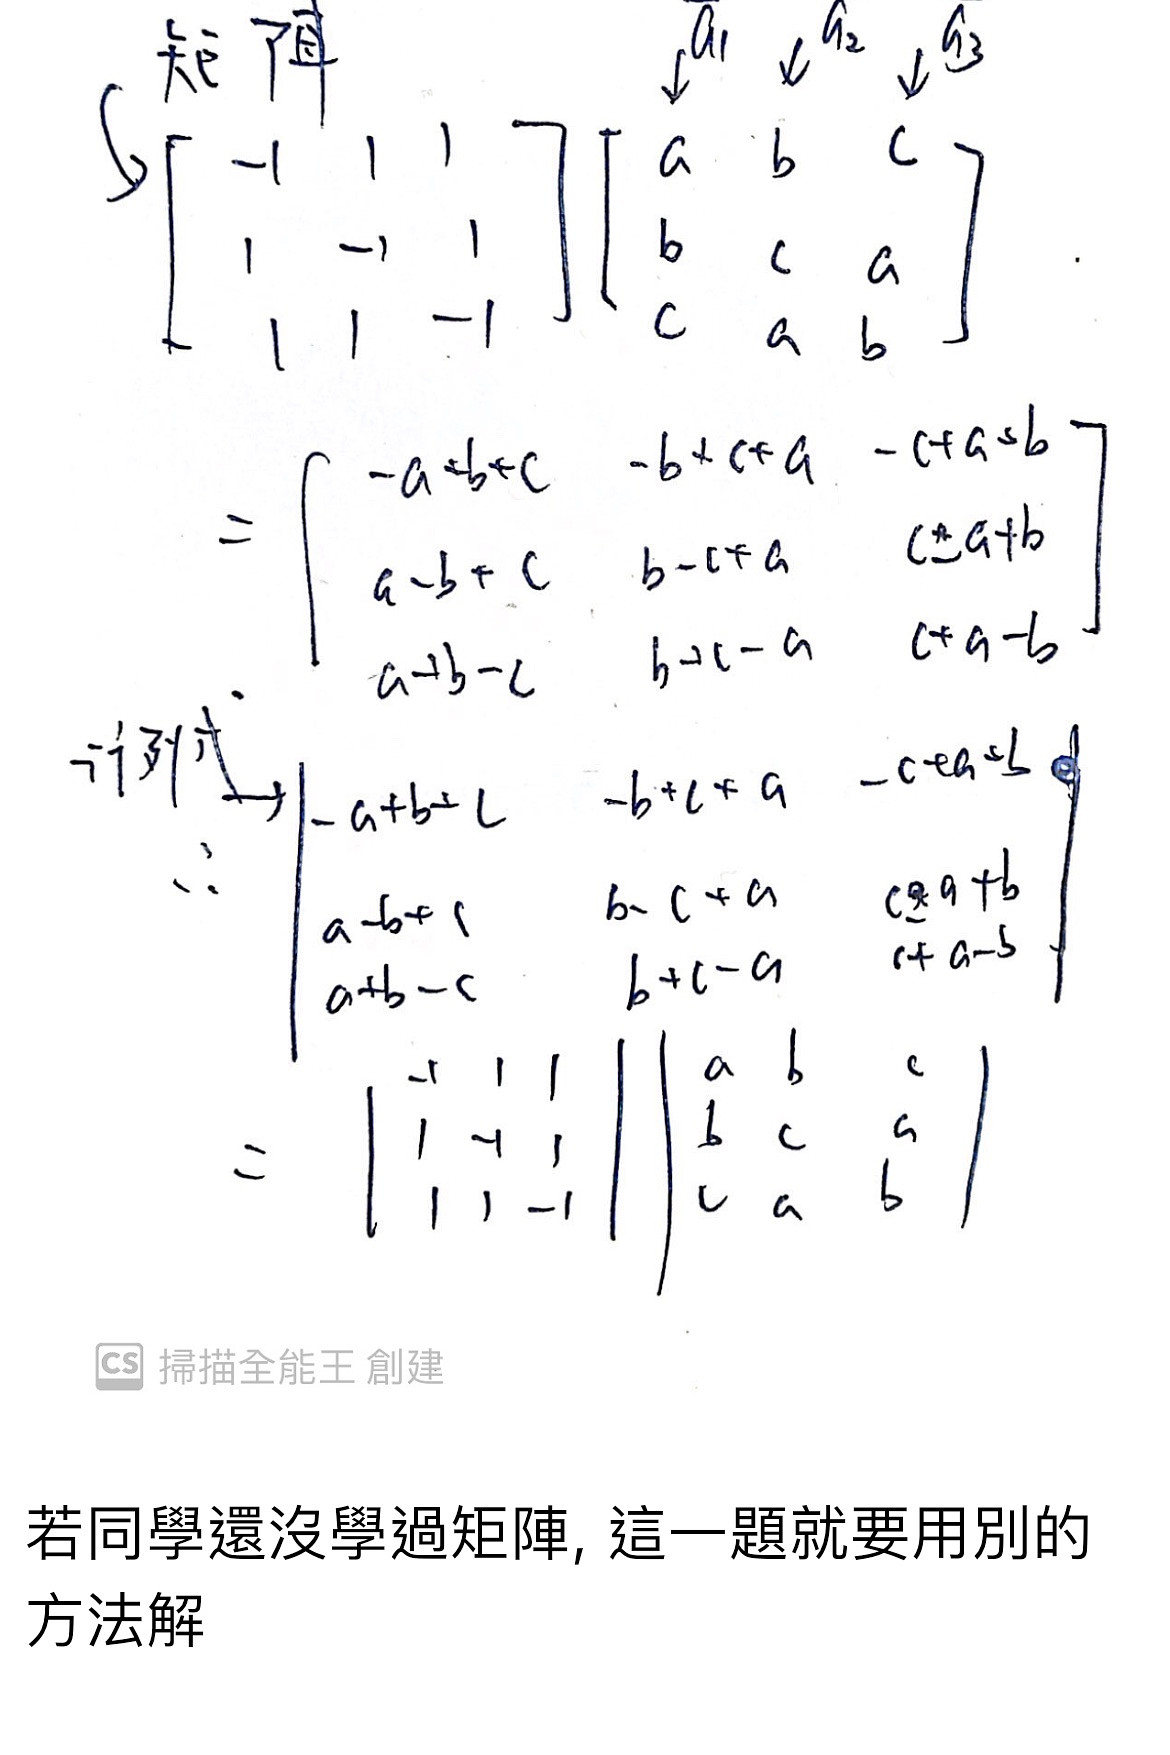 矩陣
a1 a2 a3
[ -1 1 1 ] [ a b c ]
[ 1 -1 1 ] [ b c a ]
[ 1 1 -1 ] [ c a b ]
= [ -a+b+c -b+c+a -c+a+b ]
[ a-b+c b-c+a c-a+b ]
[ a+b-c b+c-a c+a-b ]
行列式
∴ | -a+b+c -b+c+a -c+a+b |
| a-b+c b-c+a c-a+b |
| a+b-c b+c-a c+a-b |
= | -1 1 1 | | a b c |
| 1 -1 1 | | b c a |
| 1 1 -1 | | c a b |
CS 掃描全能王 創建
若同學還沒學過矩陣, 這一題就要用別的
方法解